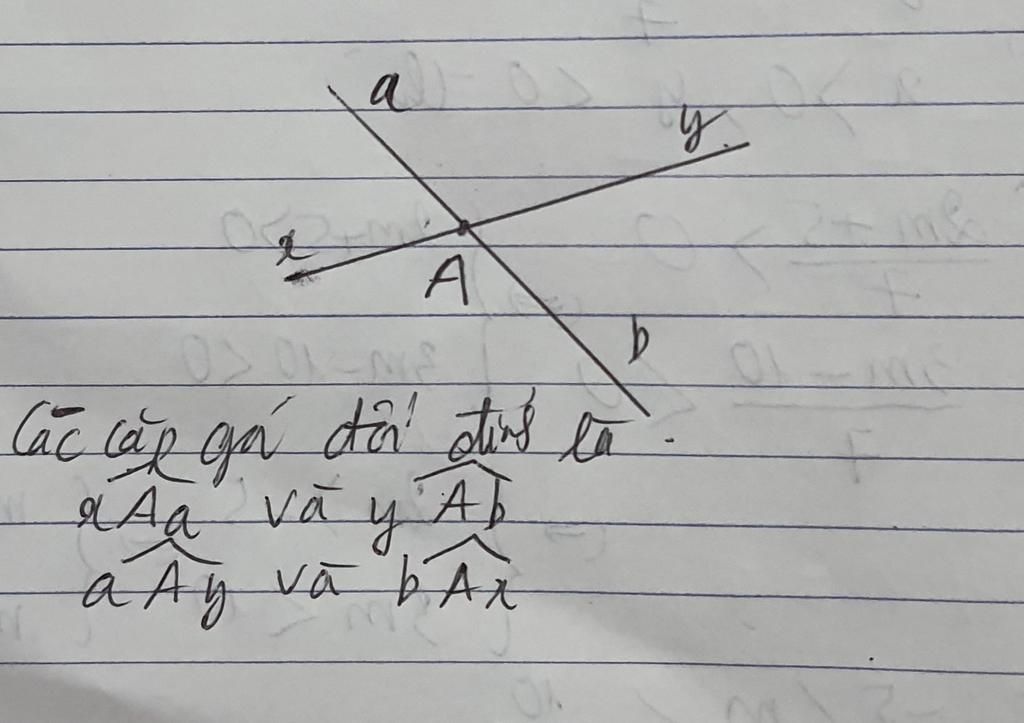 a
y
x
A
b
Các cặp góc đối đỉnh là.
xAa và yAb
aAy và bAx